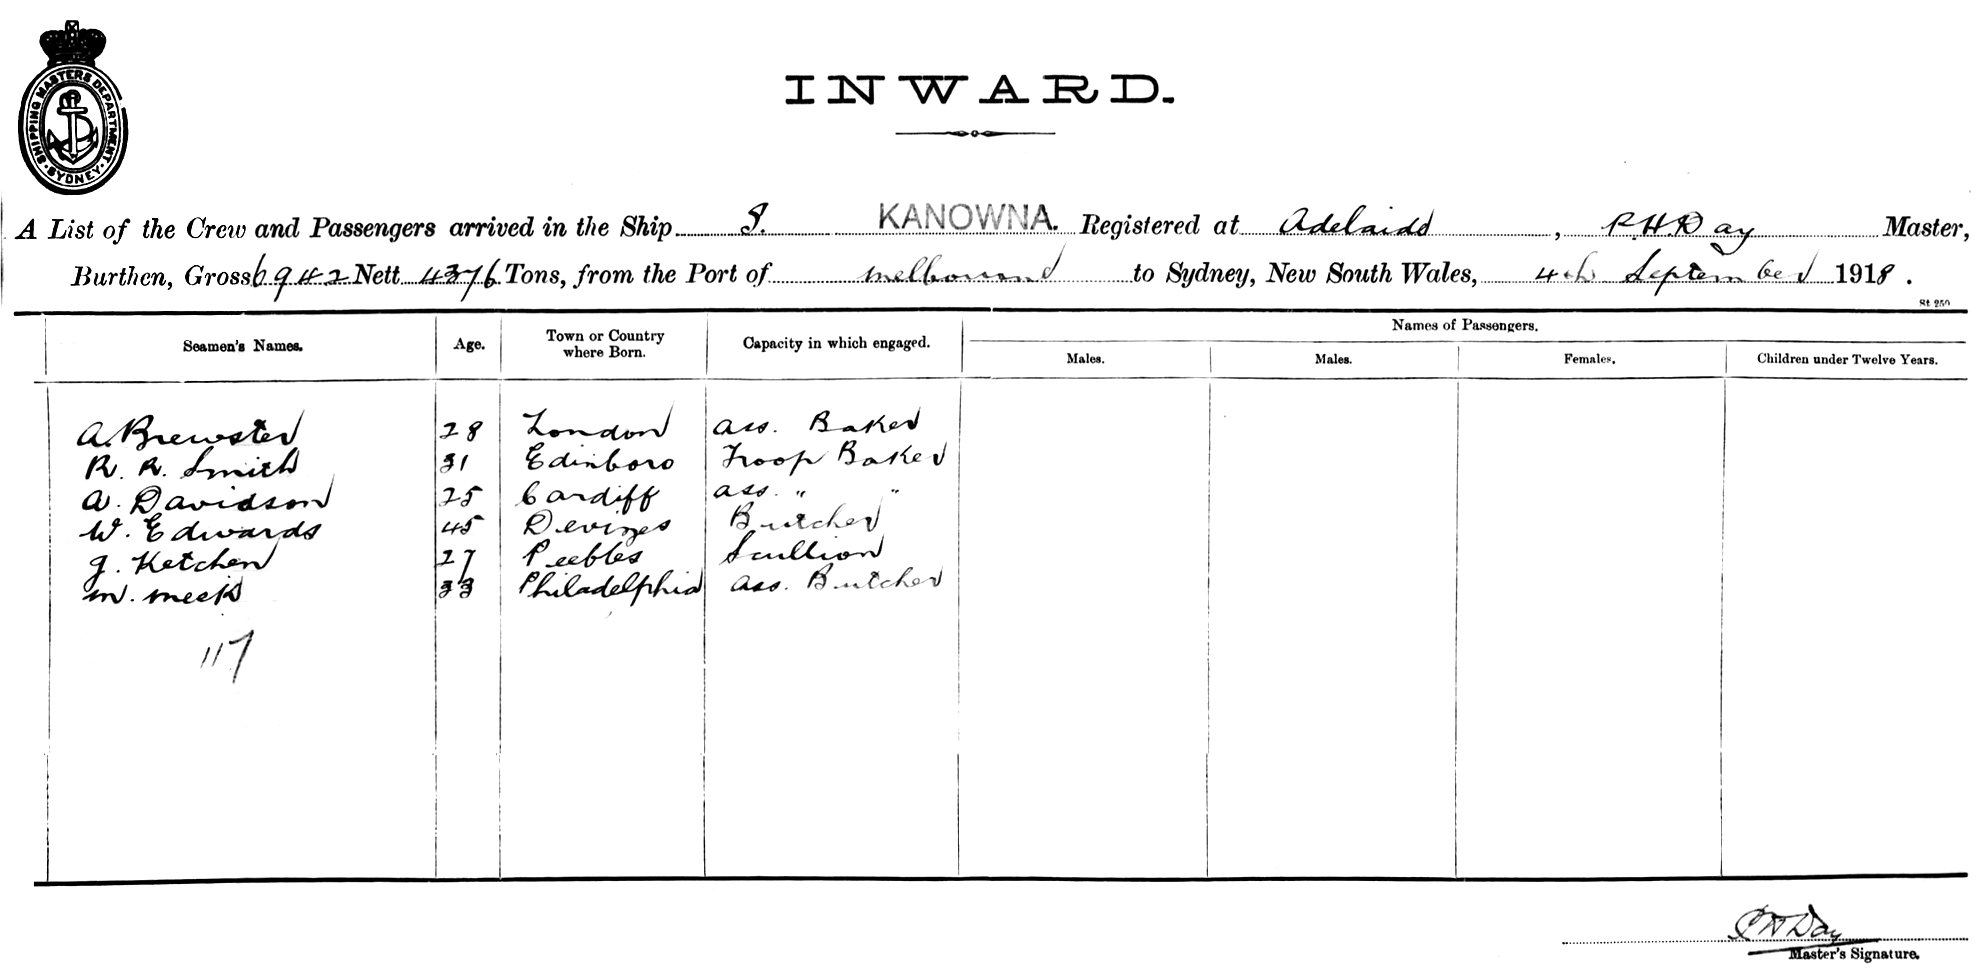 SHIPPING MASTERS DEPARTMENT
SYDNEY
INWARD.
A List of the Crew and Passengers arrived in the Ship S. KANOWNA. Registered at Adelaide, R.H.Day Master,
Burthen, Gross 6942 Nett 4376 Tons, from the Port of Melbourne to Sydney, New South Wales, 4th September 1918.
St 250
Names of Passengers.
Seamen's Names. Age. Town or Country where Born. Capacity in which engaged. Males. Males. Females. Children under Twelve Years.
A. Brewster 28 London Ass. Baker
R. R. Smith 31 Edinboro Troop Baker
A. Davidson 25 Cardiff Ass. " "
W. Edwards 45 Devizes Butcher
J. Ketchen 27 Peebles Scullion
M. Meek 33 Philadelphia Ass. Butcher
117
R H Day
Master's Signature.